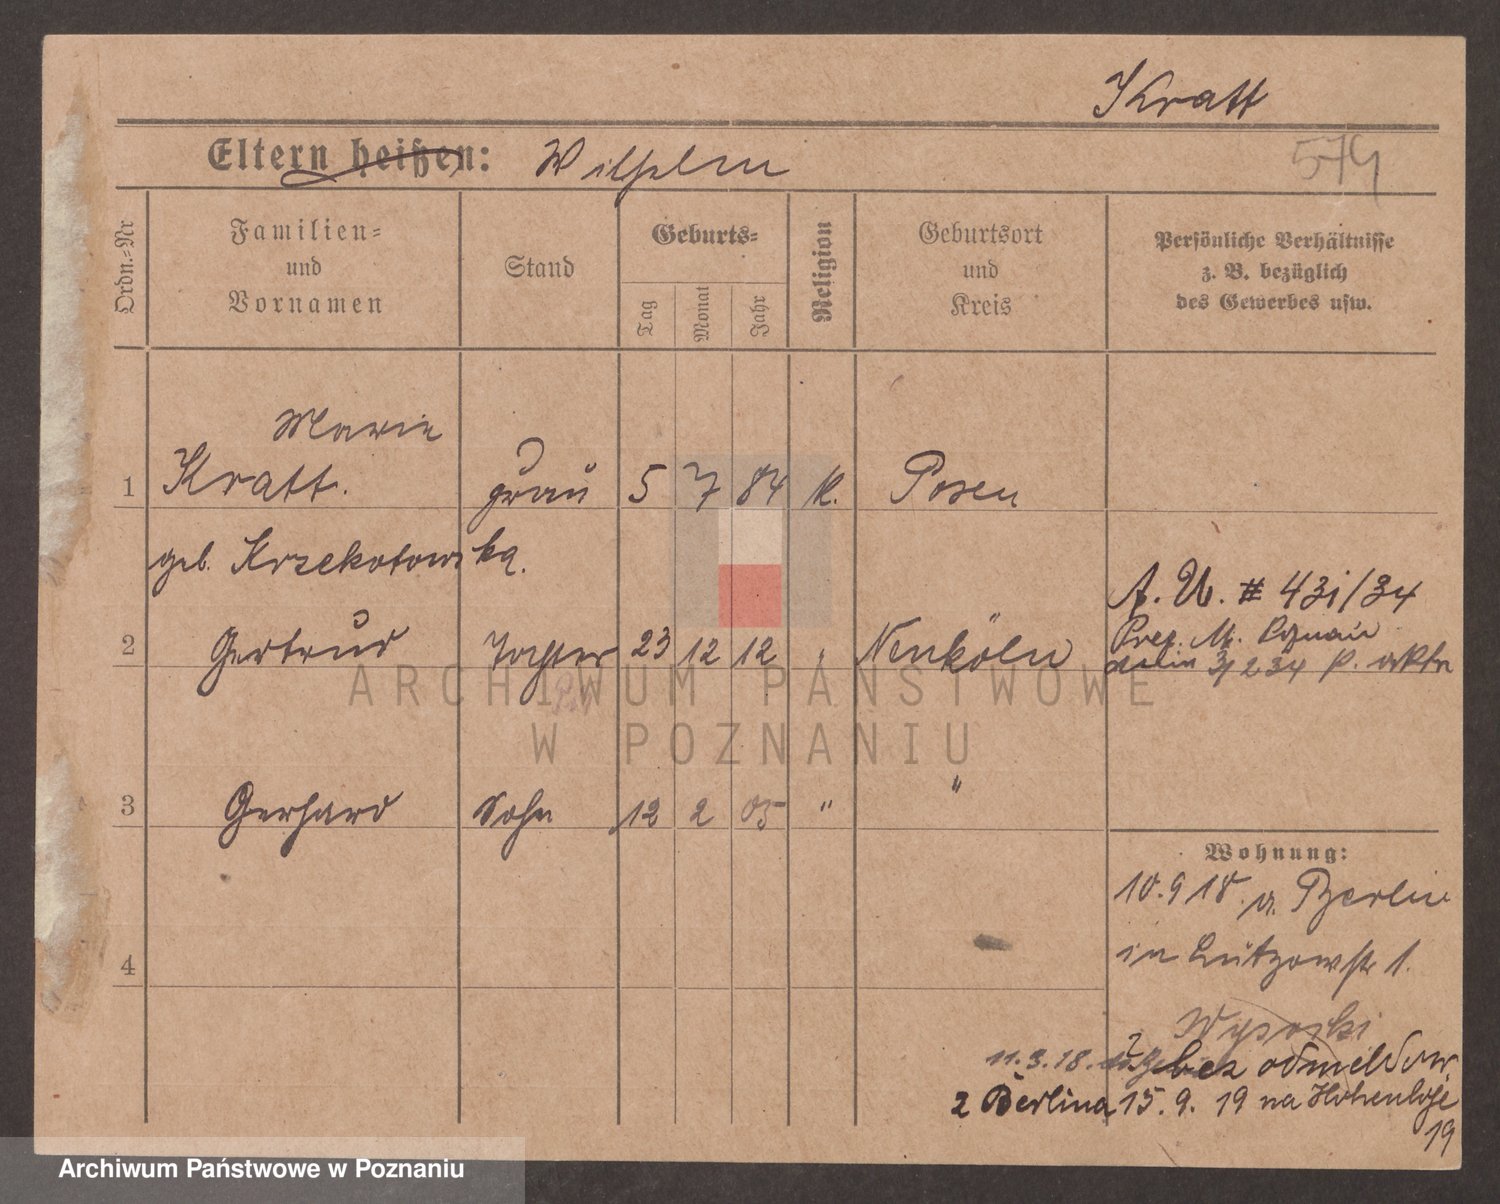 Kratt
Eltern heißen: Wilhelm
574
Ordn.-Nr
Familien-
und
Vornamen
Stand
Geburts-
Tag
Monat
Jahr
Religion
Geburtsort
und
Kreis
Persönliche Verhältnisse
z. B. bezüglich
des Gewerbes usw.
Marie
1 Kratt. Frau 5 7 84 K. Posen
geb. Krzekotowska.
A. U. # 431/34
2 Gertrud Tochter 23 12 12 " Neuköln
3 Gerhard Sohn 12 2 05 " "
Wohnung:
10.9 18. v. Berlin
in Lützowstr 1.
4
Wysocki
11.3.18. bez odmeldow.
z Berlina 15. 9. 19 na Hohenlohe
19
ARCHIWUM PAŃSTWOWE
W POZNANIU
Archiwum Państwowe w Poznaniu